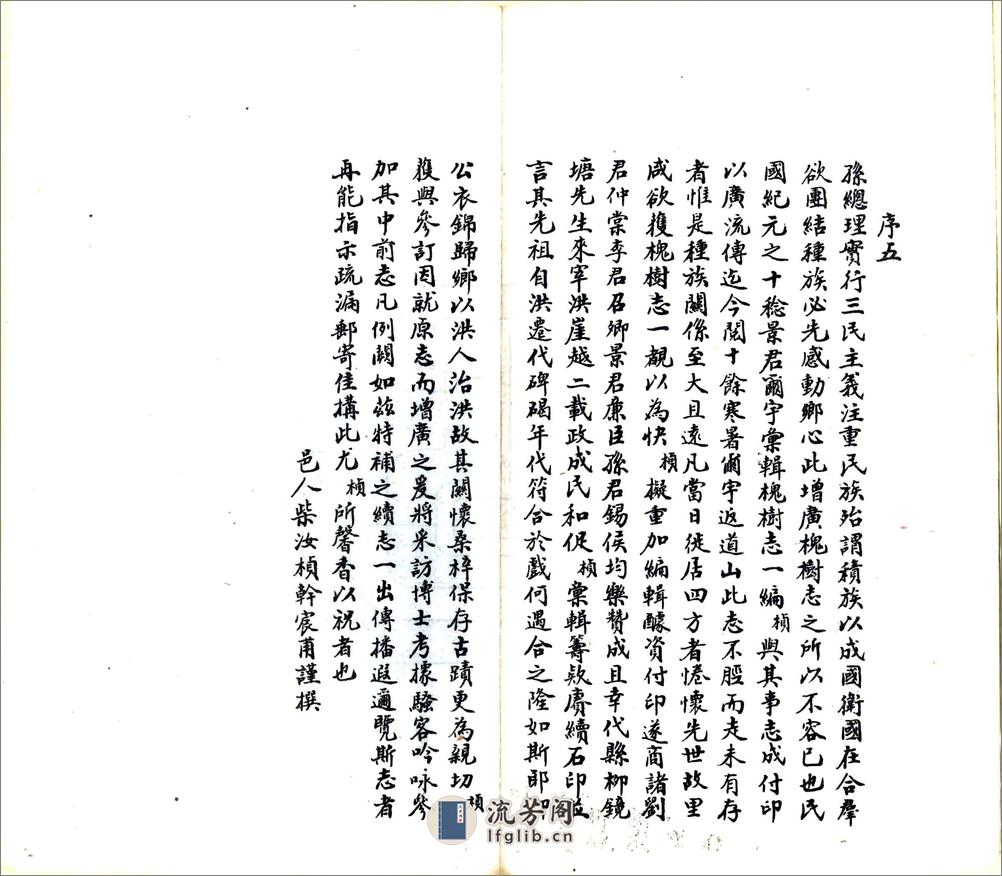 序五
孫總理實行三民主義注重民族殆謂積族以成國衛國在合羣
欲團結種族必先感動鄉心此增廣槐樹志之所以不容已也民
國紀元之十稔景君爾宇彙輯槐樹志一編楨與其事志成付印
以廣流傳迄今閱十餘寒暑爾宇返道山此志不脛而走未有存
者惟是種族關係至大且遠凡當日徙居四方者惓懷先世故里
咸欲獲槐樹志一覩以為快楨擬重加編輯醵資付印遂商諸劉
君仲棠李君召卿景君廉臣孫君錫侯均樂贊成且幸代縣柳鏡
塘先生來宰洪崖越二載政成民和促楨彙輯籌欵賡續石印並
言其先祖自洪遷代碑碣年代符合於戲何遇合之隆如斯耶柳
公衣錦歸鄉以洪人治洪故其關懷桑梓保存古蹟更為親切楨
獲與參訂因就原志而增廣之爰將采訪博士考據騷客吟咏參
加其中前志凡例闕如茲特補之續志一出傳播遐邇覽斯志者
再能指示疏漏郵寄佳搆此尤楨所馨香以祝者也
邑人柴汝楨幹宸甫謹撰
流芳阁
lfglib.cn